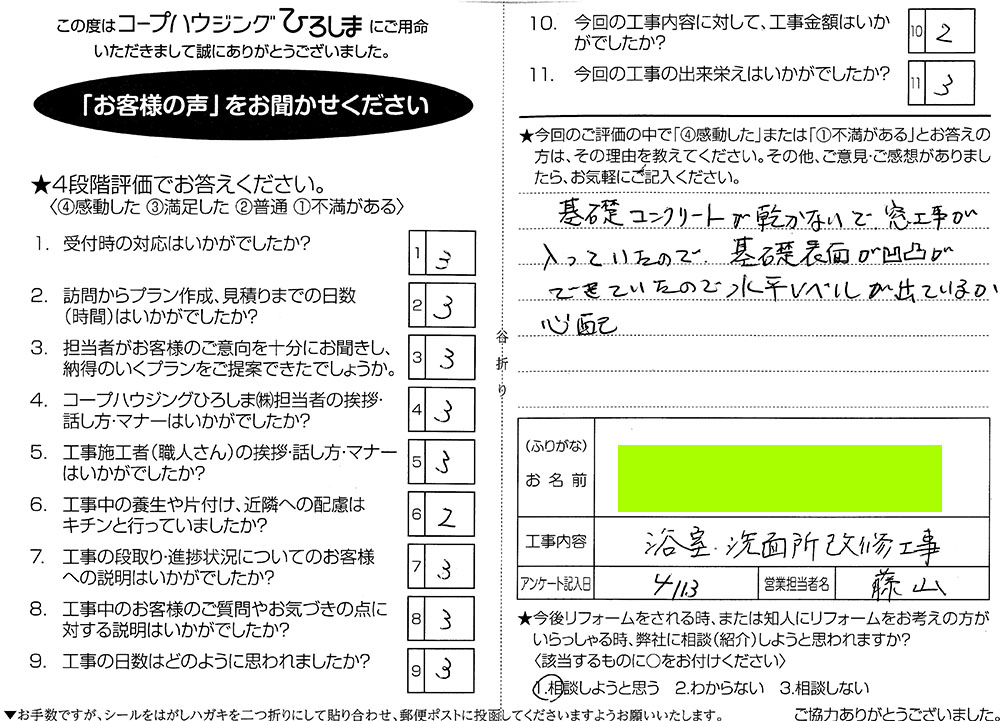 この度はコープハウジングひろしまにご用命
いただきまして誠にありがとうございました。
「お客様の声」をお聞かせください
★4段階評価でお答えください。
〈④感動した ③満足した ②普通 ①不満がある〉
1. 受付時の対応はいかがでしたか?
1 3
2. 訪問からプラン作成、見積りまでの日数
(時間)はいかがでしたか?
2 3
3. 担当者がお客様のご意向を十分にお聞きし、
納得のいくプランをご提案できたでしょうか。
3 3
4. コープハウジングひろしま㈱担当者の挨拶・
話し方・マナーはいかがでしたか?
4 3
5. 工事施工者(職人さん)の挨拶・話し方・マナー
はいかがでしたか?
5 3
6. 工事中の養生や片付け、近隣への配慮は
キチンと行っていましたか?
6 2
7. 工事の段取り・進捗状況についてのお客様
への説明はいかがでしたか?
7 3
8. 工事中のお客様のご質問やお気づきの点に
対する説明はいかがでしたか?
8 3
9. 工事の日数はどのように思われましたか?
9 3
▼お手数ですが、シールをはがしハガキを二つ折りにして貼り合わせ、郵便ポストに投函してくださいますようお願いいたします。
谷折り
10. 今回の工事内容に対して、工事金額はいか
がでしたか?
10 2
11. 今回の工事の出来栄えはいかがでしたか?
11 3
★今回のご評価の中で「④感動した」または「①不満がある」とお答えの
方は、その理由を教えてください。その他、ご意見・ご感想がありまし
たら、お気軽にご記入ください。
基礎コンクリートが乾かないで、窓工事が
入っていたので、基礎表面が凹凸が
できていたので水平レベルが出ているか
心配
(ふりがな)
お名前
工事内容 浴室・洗面所改修工事
アンケート記入日 4/13 営業担当者名 藤山
★今後リフォームをされる時、または知人にリフォームをお考えの方が
いらっしゃる時、弊社に相談(紹介)しようと思われますか?
〈該当するものに○をお付けください〉
1.相談しようと思う 2.わからない 3.相談しない
ご協力ありがとうございました。